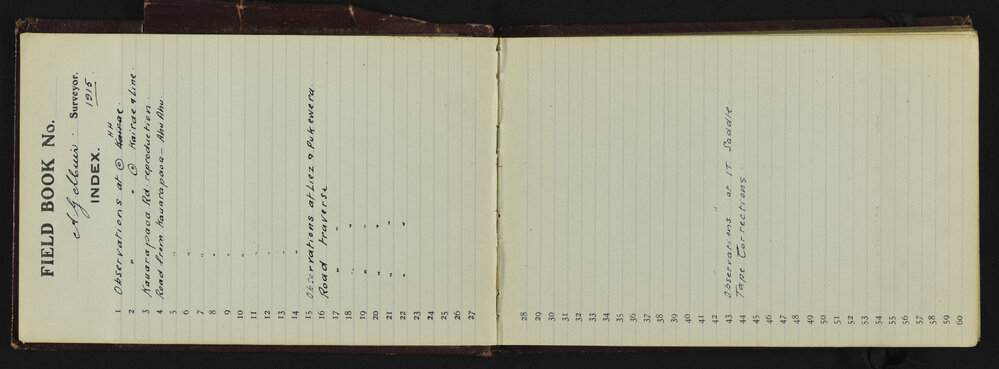 FIELD BOOK No.
Surveyor.
1915.
INDEX.
HH
1 Observations at Ⓐ Kairae.
2 " " Ⓐ Kairae & Line.
3 Kauarapaoa Rd. reproduction.
4 Road from Kauarapaoa - Ahu Ahu
5 "
6 "
7 "
8 "
9 "
10 "
11 "
12 "
13 "
14 "
15 Observations at Liez & Pukewera.
16 Road traverse
17 " "
18 " "
19 " "
20 " "
21 " "
22 " "
23
24
25
26
27
28
29
30
31
32
33
34
35
36
37
38
39
40
41
42 "
43 Observations at IT Saddle.
44 Tape Corrections
45
46
47
48
49
50
51
52
53
54
55
56
57
58
59
60